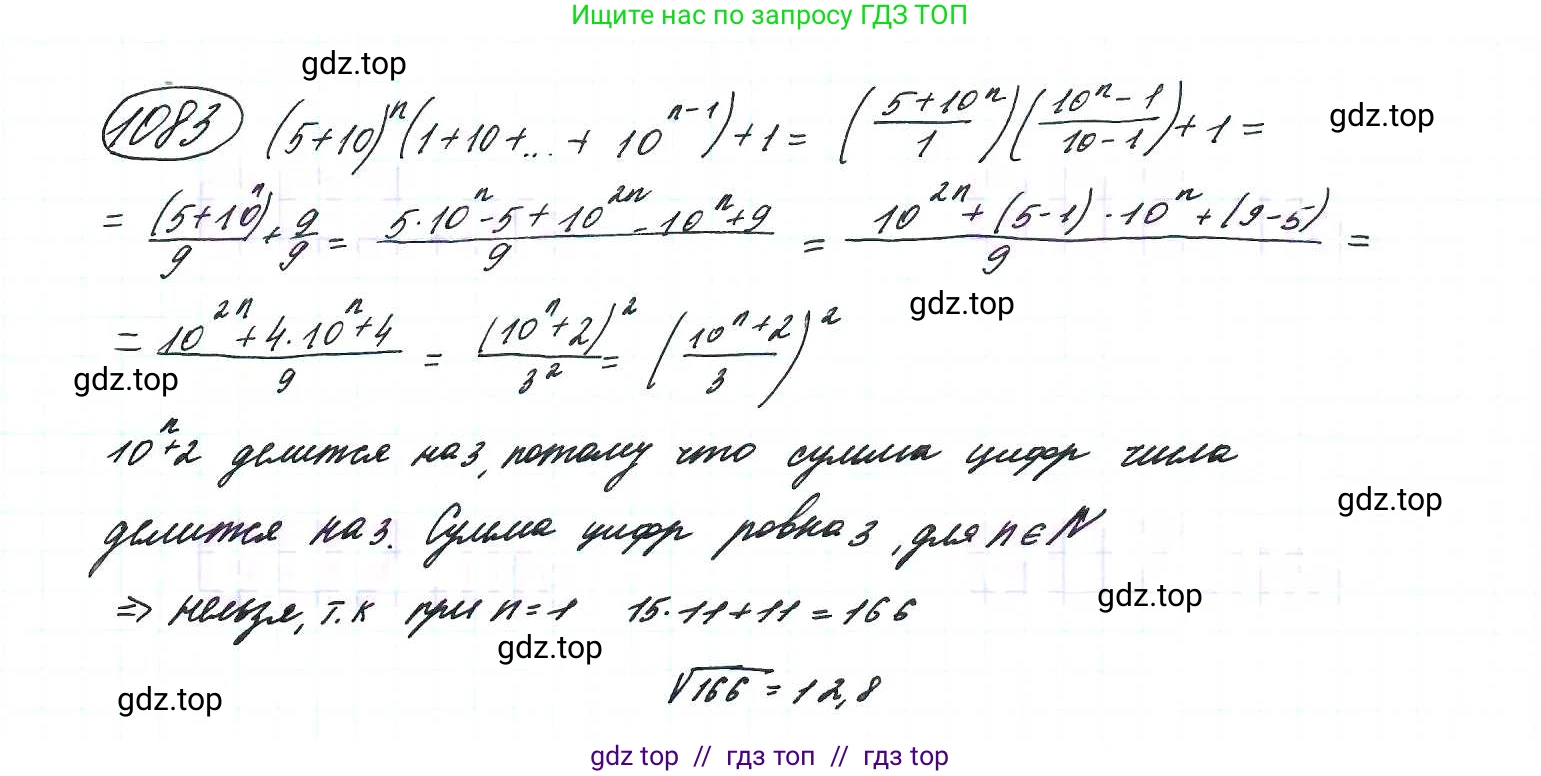 Ищите нас по запросу ГДЗ ТОП
gdz.top
1083 (5+10)ⁿ(1+10+...+10ⁿ⁻¹)+1 = ((5+10ⁿ)/1)((10ⁿ-1)/(10-1))+1 =
gdz.top
= (5+10ⁿ)/9 + 9/9 = (5·10ⁿ-5+10²ⁿ-10ⁿ+9)/9 = (10²ⁿ+(5-1)·10ⁿ+(9-5))/9 =
gdz.top
= (10²ⁿ+4·10ⁿ+4)/9 = (10ⁿ+2)²/3² = ((10ⁿ+2)/3)²
gdz.top
10ⁿ+2 делится на 3, потому что сумма цифр числа
gdz.top
делится на 3. Сумма цифр ровна 3, для n ∈ N
gdz.top
=> нельзя, т.к при n=1 15·11+11=166
gdz.top
gdz.top
√166 = 12,8
gdz top // гдз топ // гдз top